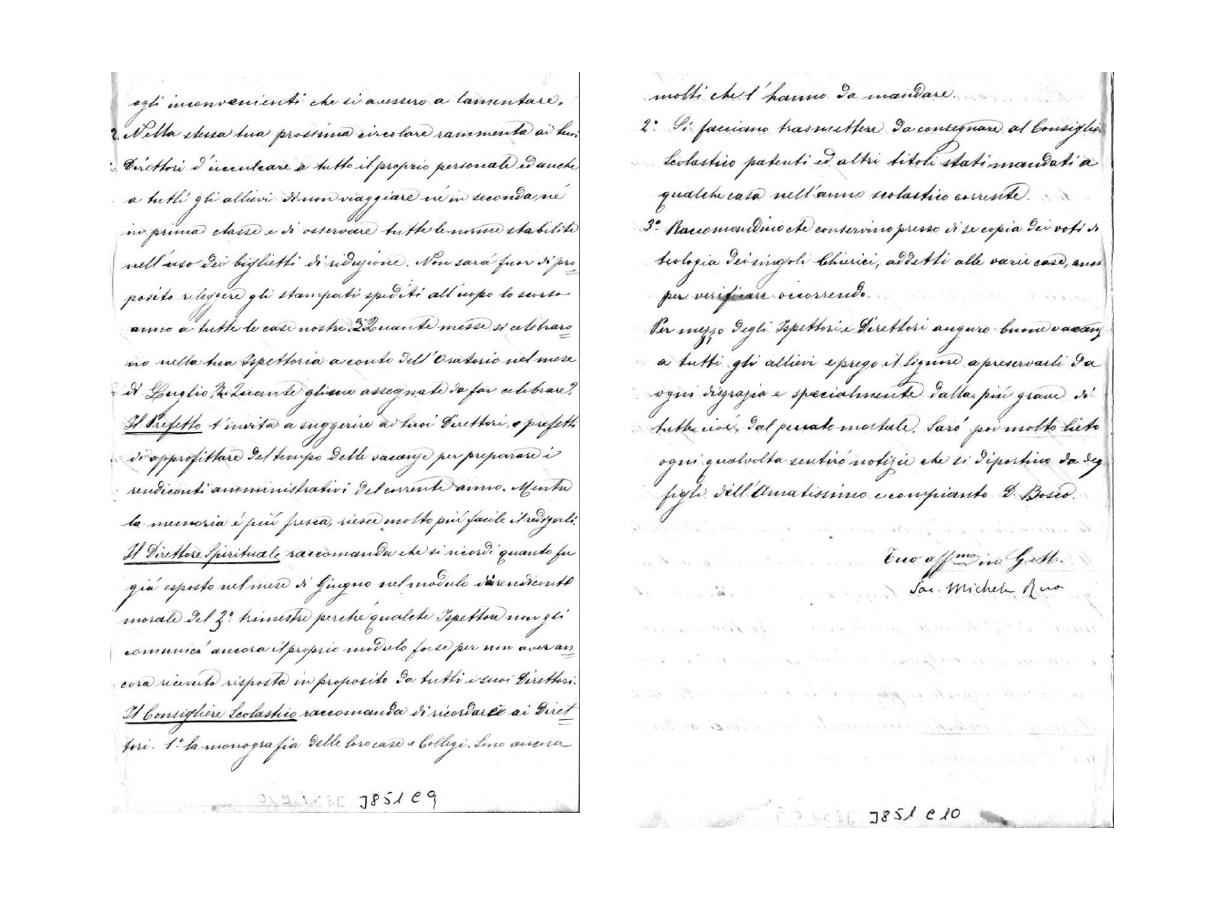 agli inconvenienti che si avessero a lamentare.
2. Nella stessa tua prossima circolare rammenta ai tuoi
Direttori d'inculcare a tutto il proprio personale ed anche
a tutti gli allievi di non viaggiare nè in seconda, nè
in prima classe e di osservare tutte le norme stabilite
nell'uso dei biglietti di riduzione. Non sarà fuor di pro=
posito rileggere gli stampati spediti all'uopo lo scorso
anno a tutte le case nostre. Quante messe si celebraro=
no nella tua Ispettoria a conto dell'Oratorio nel mese
di Luglio, Quante gliene assegnate da far celebrare?
Il Prefetto t'invita a suggerire ai tuoi Direttori, e prefetti
di approfittare del tempo delle vacanze per preparare i
rendiconti amministrativi del corrente anno. Mentre
la memoria è più fresca, riesce molto più facile il redigerli.
Il Direttore Spirituale raccomanda che si ricordi quanto fu
già esposto nel mese di Giugno nel modulo di rendiconto
morale del 2° trimestre perchè qualche Ispettore non gli
comunicò ancora il proprio modulo forse per non aver an=
cora ricevuto risposta in proposito da tutti i suoi Direttori.
Il Consigliere Scolastico raccomanda di ricordare ai Diret=
tori. 1° la monografia delle loro case e Collegi. Sono ancora
J851 C9
molti che l'hanno da mandare.
2° Si facciano trasmettere da consegnare al Consiglie
Scolastico patenti ed altri titoli stati mandati a
qualche casa nell'anno scolastico corrente.
3° Raccomandino che conservino presso di se copia dei voti di
teologia dei singoli Chierici, addetti alle varie case,
per verificare occorrendo.
Per mezzo degli Ispettori e Direttori auguro buone vacanz
a tutti gli allievi e prego il Signore a preservarli da
ogni disgrazia e specialmente dalla più grave di
tutte cioè, dal peccato mortale. Sarò poi molto lieto
ogni qualvolta sentirò notizie che si diportino da deg
figli dell'Amatissimo e compianto D. Bosco.
Tuo affmo in G. e M.
Sac. Michele Rua
J851 C10